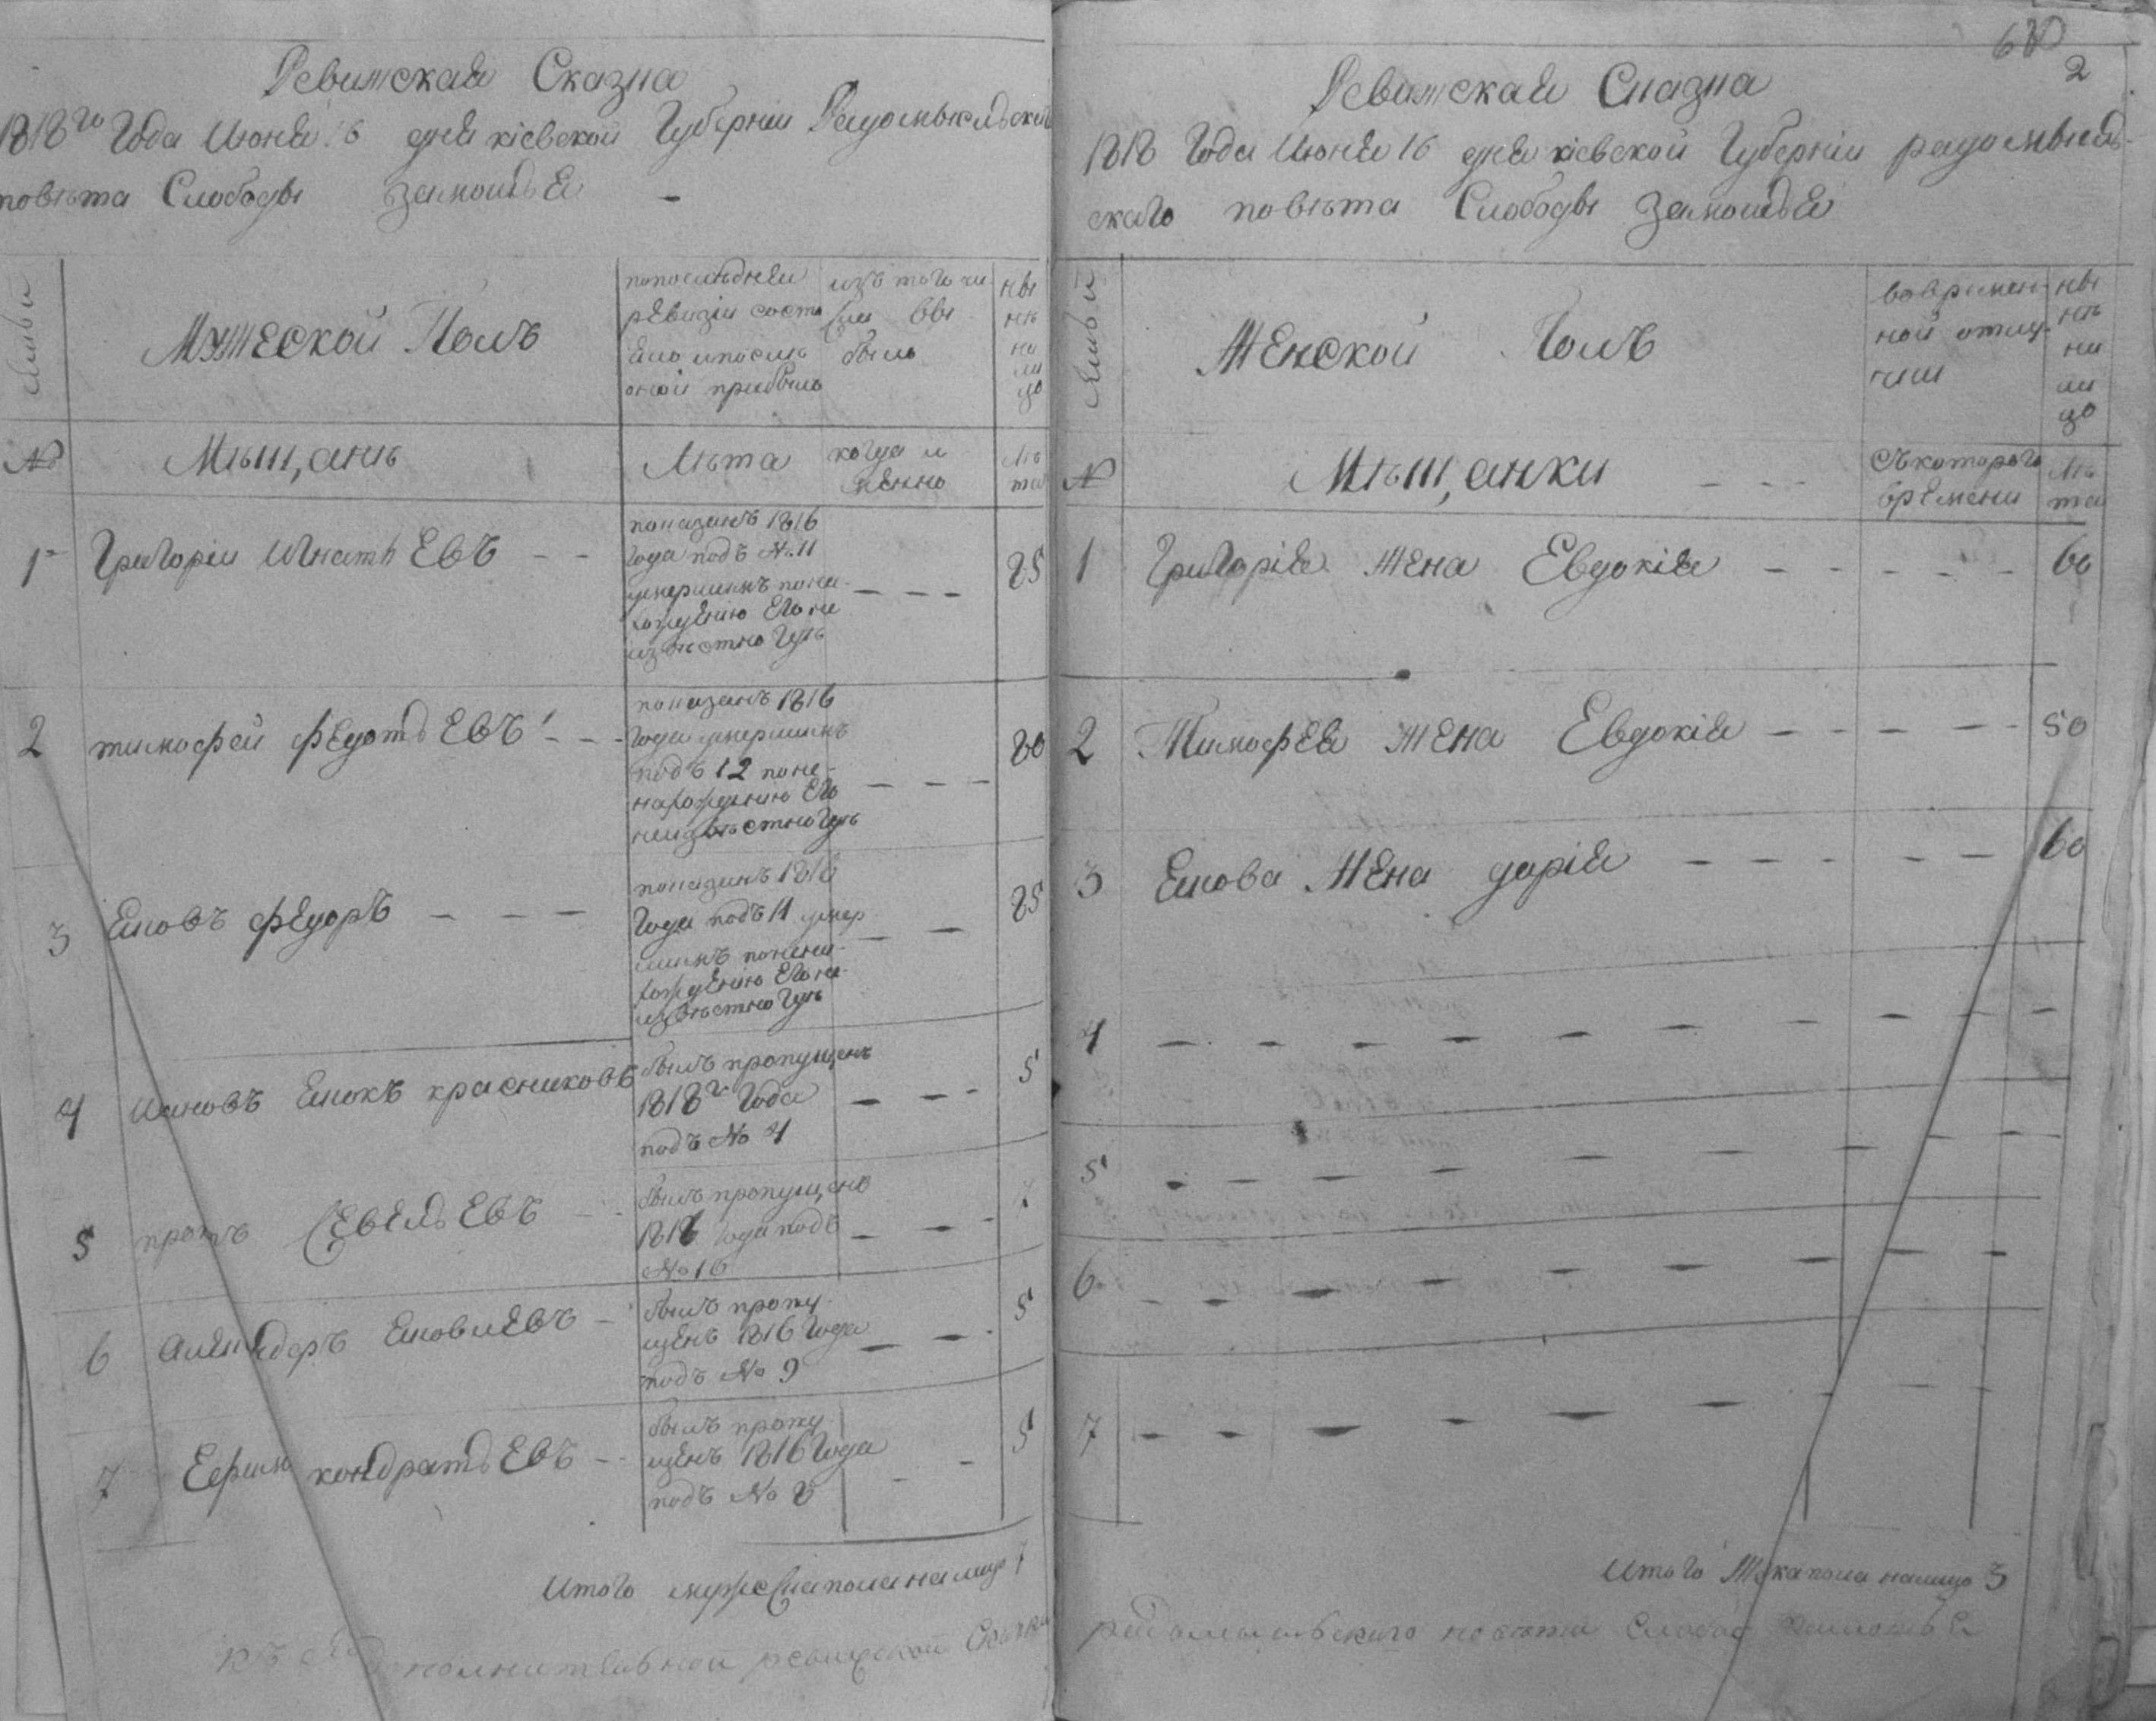 Ревижская Сказка
1818го Года Июня 16 дня кіевской Губерніи Радомысльскаго
повѣта Слободы Замошья
Семьи
Мужеской Полъ
попослѣдней
ревизіи состо
яло ипослѣ
оной прибыло
изъ того чи
сла вы
было
ны
нѣ
на
ли
цо
№
Мѣщанѣ
Лѣта
когда и
менно
лѣ
та
1
Григоріи Игнатьевъ
показанъ 1816
Года подъ № 11
умершимъ понена
хожденію Его не
извѣстно Гдѣ
85
2
тимофеи Федотьевъ
показанъ 1816
Года умершимъ
подъ 12 поне
нахожденію Его
неизвѣстно Гдѣ
80
3
Яковъ Федоръ
показанъ 1816
Года подъ 11 умер
шимъ понена
хожденію Его не
извѣстно Гдѣ
85
4
Ивановъ Якокъ красниковъ
былъ пропущенъ
1818го Года
подъ № 4
5
5
Севельевъ
былъ пропущено
1816 Года подъ
№ 16
7
6
Яковлевъ
былъ пропу
щенъ 1816 Года
подъ № 9
5
7
Ефимъ кондратьевъ
былъ пропу
щенъ 1816 Года
подъ № 8
5
Итого мужескаполаналицо 7
къ дополнительной ревижской Сказки
2
Ревижская Сказка
1818 Года Июня 16 дня кіевской Губерніи радомысль-
скаго повѣта Слободы Замошья
Семьи
Женской Полъ
вовремен-
ной отлу-
чки
ны
нѣ
на
ли
цо
№
Мѣщанки
Съкотораго
времени
лѣ
та
1
Григорія Жена Евдокія
60
2
Тимофея жена Евдокія
50
3
Якова Жена дарія
60
4
5
6
7
Итого Ж ка пола налицо 3
радомысльскаго повѣта Слобод Замошья